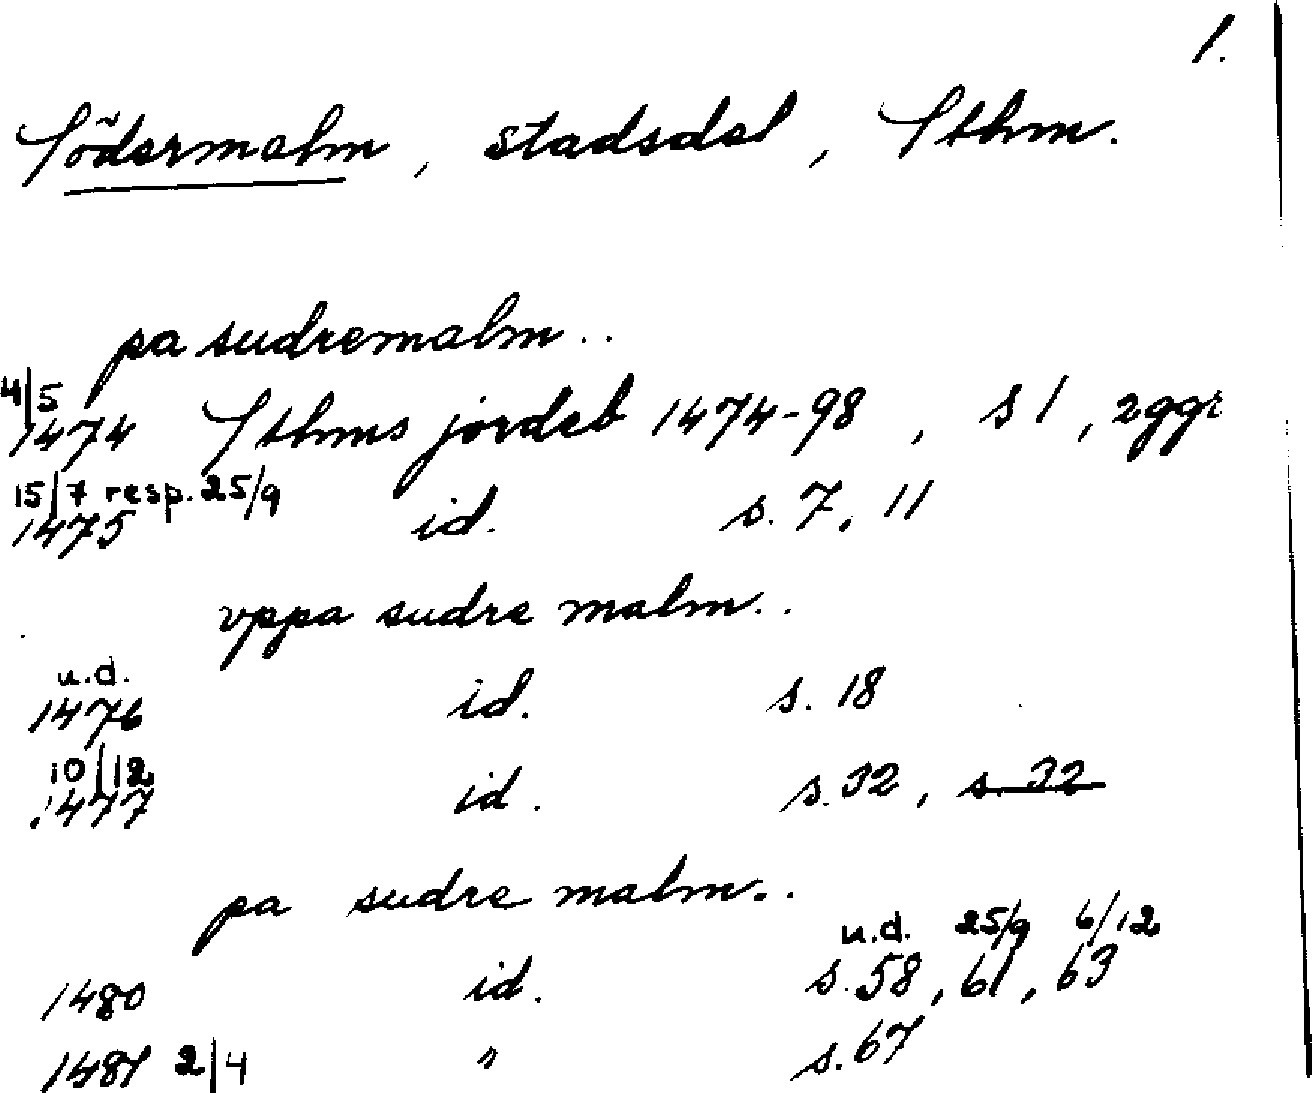 1.
Södermalm, stadsdel, Sthm.
pa sudremalm..
4/5
1474 Sthms jordeb 1474-98, s 1, 2ggr
15/7 resp. 25/9
1475 id. s. 7, 11
vppa sudre malm..
u.d.
1476 id. s. 18
10/12
1477 id. s. 32, s. 32
pa sudre malm..
u.d. 25/9 6/12
1480 id. s. 58, 61, 63
1481 2/4 " s. 67